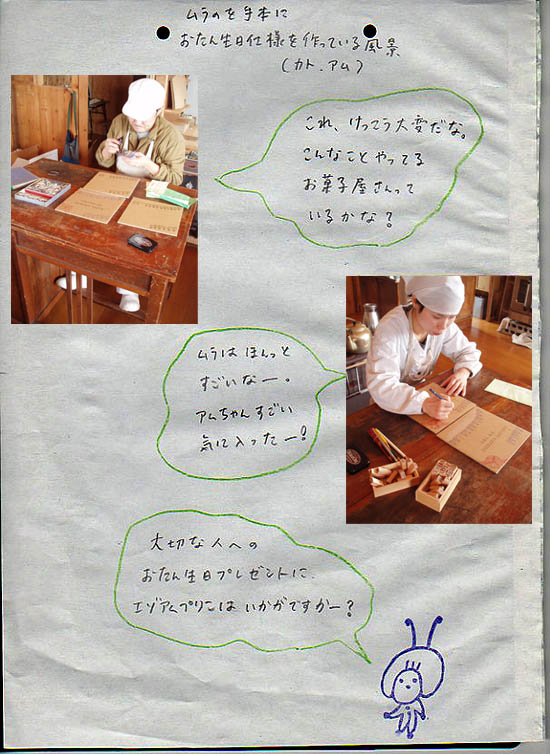 ムラのを手本に
おたん生日仕様を作っている風景
(カト、アム)
これ、けっこう大変だな。
こんなことやってる
お菓子屋さんって
いるかな?
ムラはほんっと
すごいなー。
アムちゃんすごい
気に入ったー!
大切な人への
おたん生日プレゼントに、
エゾアムプリンはいかがですかー?